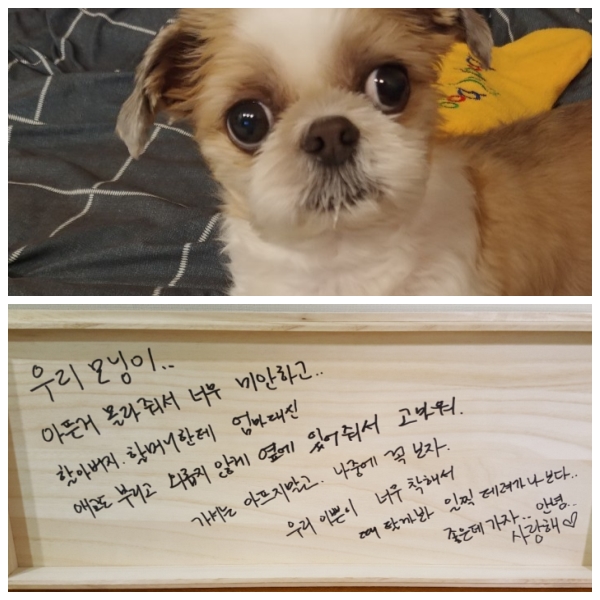 우리 모닝이..
아픈거 몰라줘서 너무 미안하고..
할아버지. 할머니한테 엄마대신
애교도 부리고 외롭지 않게 옆에 있어줘서 고마워.
가서는 아프지말고.. 나중에 꼭 보자.
우리 이쁜이 너무 착해서
때 탈까봐 일찍 데려가나보다..
좋은데 가자.. 안녕..
사랑해♡